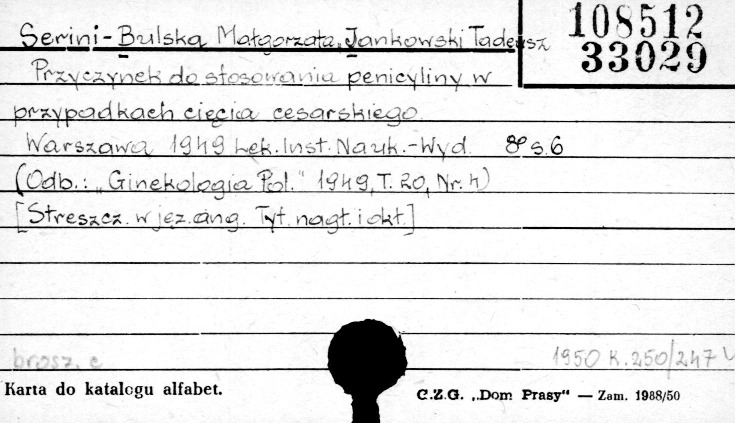 Serini-Bulska Małgorzata, Jankowski Tadeusz
108512
33029
Przyczynek do stosowania penicyliny w
przypadkach cięcia cesarskiego.
Warszawa 1949 Lek. Inst. Nauk.-Wyd. 8° s. 6
(Odb.: "Ginekologia Pol." 1949, T. 20, Nr. 4)
[Streszcz. w jęz. ang. Tyt. nagł. i okł.]
brosz. c
1950 K. 250/247
Karta do katalogu alfabet.
C.Z.G. „Dom Prasy" — Zam. 1988/50